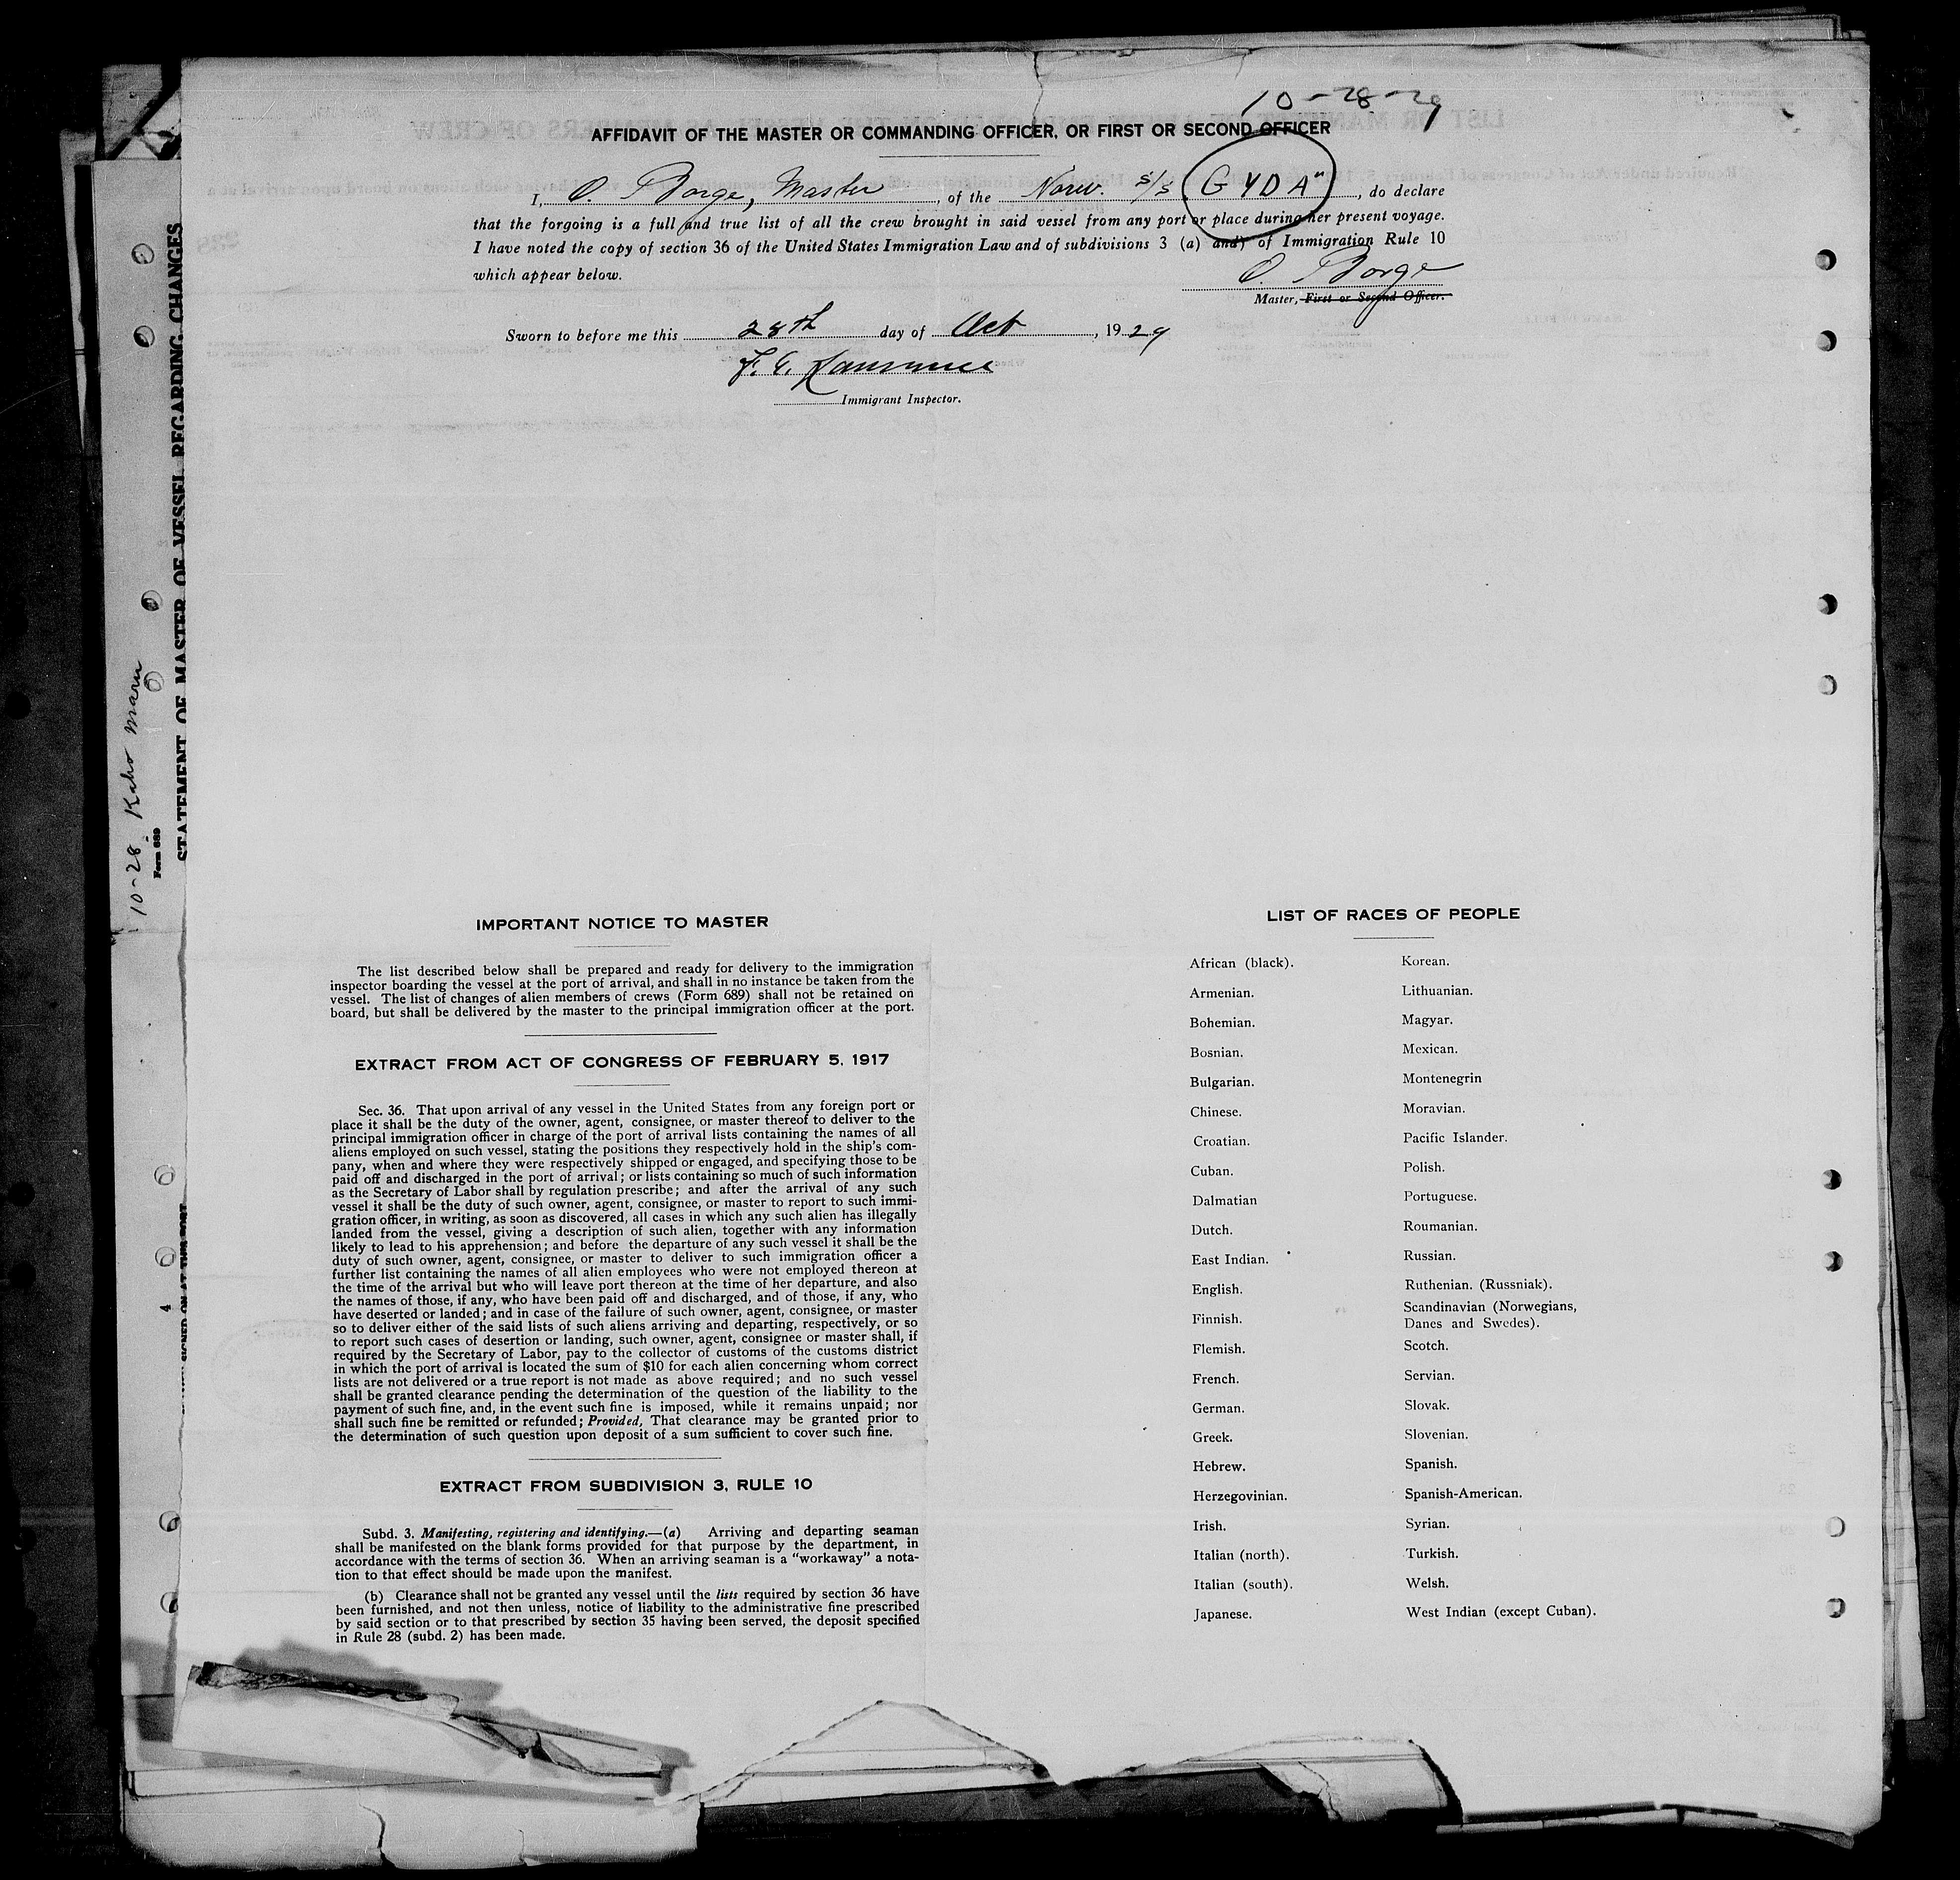 10-28-29
AFFIDAVIT OF THE MASTER OR COMMANDING OFFICER, OR FIRST OR SECOND OFFICER
I, O. Borge, Master, of the Norw. s/s "GYDA", do declare
that the forgoing is a full and true list of all the crew brought in said vessel from any port or place during her present voyage.
I have noted the copy of section 36 of the United States Immigration Law and of subdivisions 3 (a) and) of Immigration Rule 10
which appear below.
O. Borge
Master, First or Second Officer.
Sworn to before me this 28th day of Oct, 1929
F. E. Lawrence
Immigrant Inspector.
STATEMENT OF MASTER OF VESSEL REGARDING CHANGES
Form 689
10-28 Kaho Maru
4
IMPORTANT NOTICE TO MASTER
The list described below shall be prepared and ready for delivery to the immigration
inspector boarding the vessel at the port of arrival, and shall in no instance be taken from the
vessel. The list of changes of alien members of crews (Form 689) shall not be retained on
board, but shall be delivered by the master to the principal immigration officer at the port.
EXTRACT FROM ACT OF CONGRESS OF FEBRUARY 5, 1917
Sec. 36. That upon arrival of any vessel in the United States from any foreign port or
place it shall be the duty of the owner, agent, consignee, or master thereof to deliver to the
principal immigration officer in charge of the port of arrival lists containing the names of all
aliens employed on such vessel, stating the positions they respectively hold in the ship's com-
pany, when and where they were respectively shipped or engaged, and specifying those to be
paid off and discharged in the port of arrival; or lists containing so much of such information
as the Secretary of Labor shall by regulation prescribe; and after the arrival of any such
vessel it shall be the duty of such owner, agent, consignee, or master to report to such immi-
gration officer, in writing, as soon as discovered, all cases in which any such alien has illegally
landed from the vessel, giving a description of such alien, together with any information
likely to lead to his apprehension; and before the departure of any such vessel it shall be the
duty of such owner, agent, consignee, or master to deliver to such immigration officer a
further list containing the names of all alien employees who were not employed thereon at
the time of the arrival but who will leave port thereon at the time of her departure, and also
the names of those, if any, who have been paid off and discharged, and of those, if any, who
have deserted or landed; and in case of the failure of such owner, agent, consignee, or master
so to deliver either of the said lists of such aliens arriving and departing, respectively, or so
to report such cases of desertion or landing, such owner, agent, consignee or master shall, if
required by the Secretary of Labor, pay to the collector of customs of the customs district
in which the port of arrival is located the sum of $10 for each alien concerning whom correct
lists are not delivered or a true report is not made as above required; and no such vessel
shall be granted clearance pending the determination of the question of the liability to the
payment of such fine, and, in the event such fine is imposed, while it remains unpaid; nor
shall such fine be remitted or refunded; Provided, That clearance may be granted prior to
the determination of such question upon deposit of a sum sufficient to cover such fine.
EXTRACT FROM SUBDIVISION 3, RULE 10
Subd. 3. Manifesting, registering and identifying.—(a) Arriving and departing seaman
shall be manifested on the blank forms provided for that purpose by the department, in
accordance with the terms of section 36. When an arriving seaman is a "workaway" a nota-
tion to that effect should be made upon the manifest.
(b) Clearance shall not be granted any vessel until the lists required by section 36 have
been furnished, and not then unless, notice of liability to the administrative fine prescribed
by said section or to that prescribed by section 35 having been served, the deposit specified
in Rule 28 (subd. 2) has been made.
LIST OF RACES OF PEOPLE
African (black).
Armenian.
Bohemian.
Bosnian.
Bulgarian.
Chinese.
Croatian.
Cuban.
Dalmatian
Dutch.
East Indian.
English.
Finnish.
Flemish.
French.
German.
Greek.
Hebrew.
Herzegovinian.
Irish.
Italian (north).
Italian (south).
Japanese.
Korean.
Lithuanian.
Magyar.
Mexican.
Montenegrin
Moravian.
Pacific Islander.
Polish.
Portuguese.
Roumanian.
Russian.
Ruthenian. (Russniak).
Scandinavian (Norwegians,
Danes and Swedes).
Scotch.
Servian.
Slovak.
Slovenian.
Spanish.
Spanish-American.
Syrian.
Turkish.
Welsh.
West Indian (except Cuban).